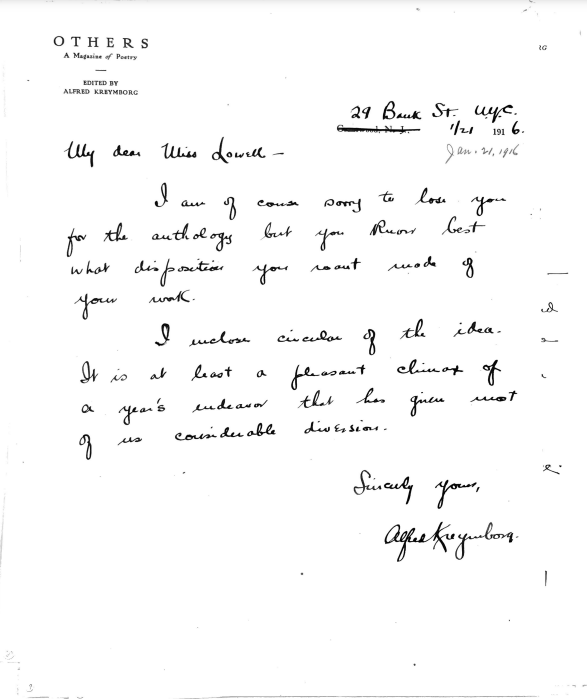 OTHERS
A Magazine of Poetry
EDITED BY
ALFRED KREYMBORG
29 Bank St. N.Y.C.
Grantwood, N. J.
1/21 1916.
Jan. 21, 1916
My dear Miss Lowell —
I am of course sorry to lose you
for the anthology but you know best
what disposition you want made of
your work.
I enclose circular of the idea.
It is at least a pleasant climax of
a year's endeavor that has given most
of us considerable diversion.
Sincerely yours,
Alfred Kreymborg.